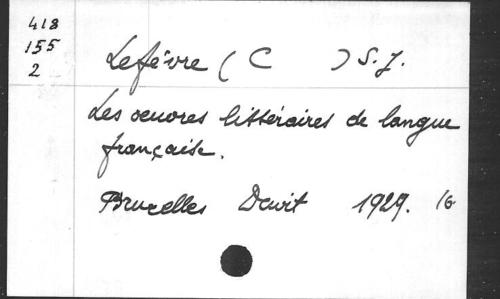 418
155
2
Lefèvre ( C ) S.J.
Les oeuvres littéraires de langue
française.
Bruxelles Dewit 1929. 16